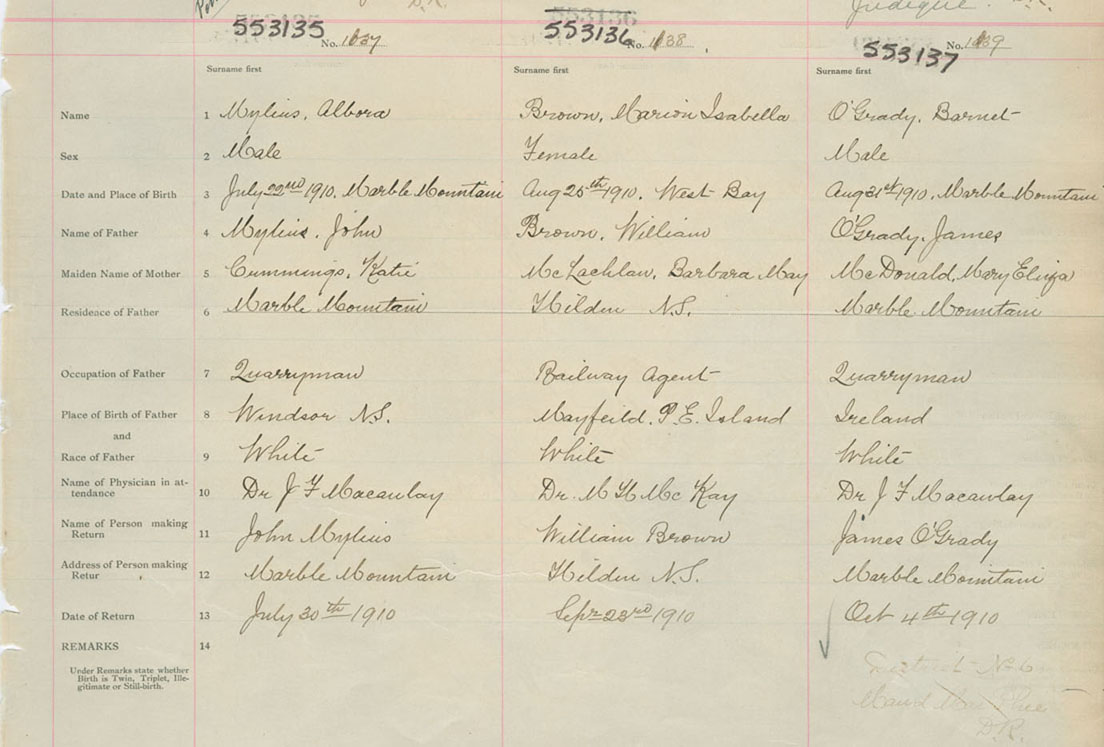 D.R. Judique.
553135 553136 553137
No. 1137 No. 1138 No. 1139
Surname first Surname first Surname first
Name 1 Mylius, Albora Brown, Marion Isabella O'Grady, Barnet
Sex 2 Male Female Male
Date and Place of Birth 3 July 22nd 1910, Marble Mountain Aug 25th 1910, West Bay Aug 31st 1910, Marble Mountain
Name of Father 4 Mylius, John Brown, William O'Grady, James
Maiden Name of Mother 5 Cummings, Katie McLachlan, Barbara May McDonald, Mary Eliza
Residence of Father 6 Marble Mountain Hilden N.S. Marble Mountain
Occupation of Father 7 Quarryman Railway Agent Quarryman
Place of Birth of Father 8 Windsor N.S. Mayfeild, P.E. Island Ireland
and
Race of Father 9 White White White
Name of Physician in at-
tendance 10 Dr J F Macaulay Dr. M H McKay Dr J F Macaulay
Name of Person making
Return 11 John Mylius William Brown James O'Grady
Address of Person making
Retur 12 Marble Mountain Hilden N.S. Marble Mountain
Date of Return 13 July 30th 1910 Sepr 23rd 1910 Oct 4th 1910
REMARKS 14
Under Remarks state whether
Birth is Twin, Triplet, Ille-
gitimate or Still-birth.
District No 6
Maud MacPhee
D.R.